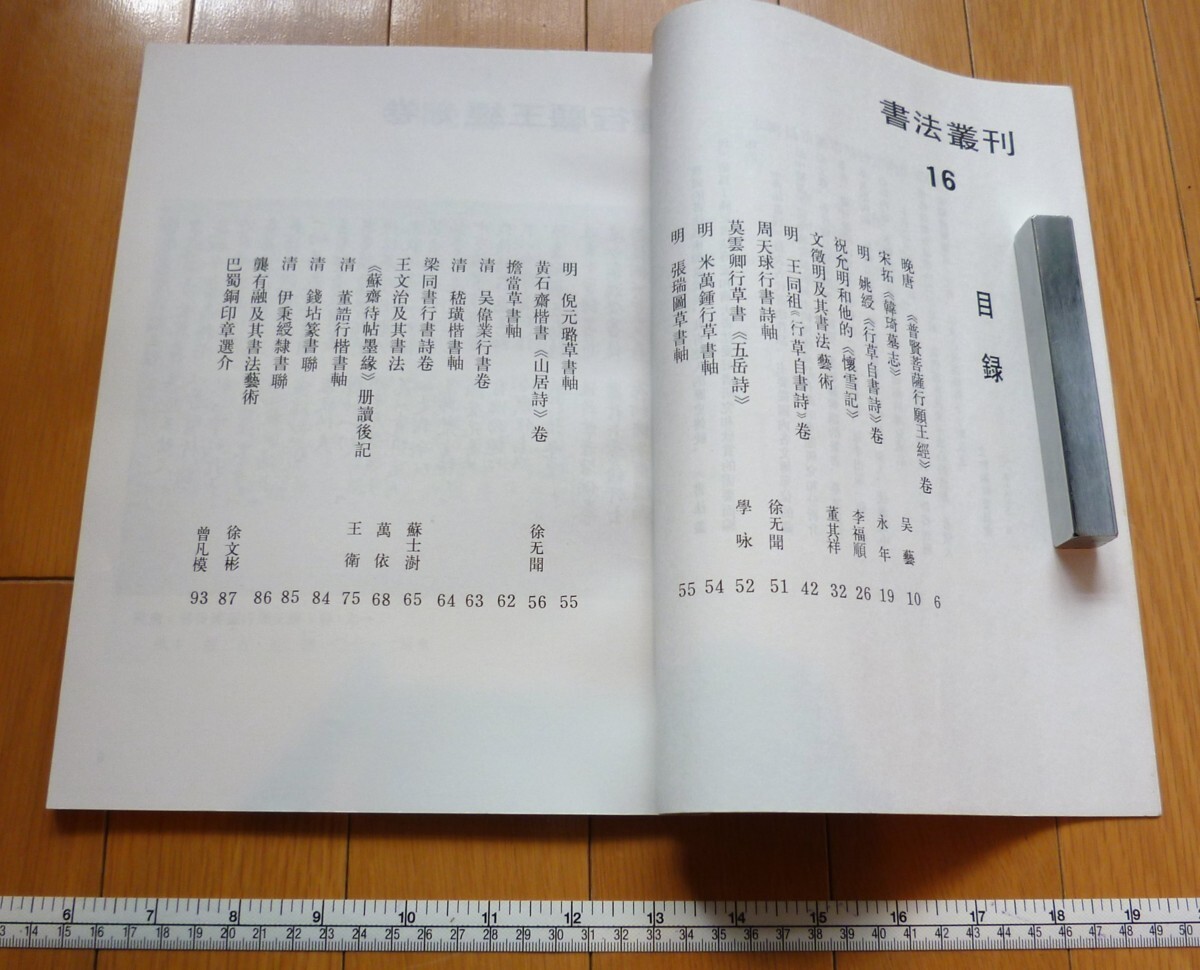 書法叢刊
16
目録
晚唐 《普賢菩薩行願王經》卷 6
宋拓《韓琦墓志》 吴藝 10
明 姚綬《行草自書詩》卷 永年 19
祝允明和他的《懷雪記》 李福順 26
文徵明及其書法藝術 董其祥 32
明 王同祖《行草自書詩》卷 42
周天球行書詩軸 徐无聞 51
莫雲卿行草書《五岳詩》 學咏 52
明 米萬鍾行草書軸 54
明 張瑞圖草書軸 55
明 倪元璐草書軸 55
黄石齋楷書《山居詩》卷 徐无聞 56
擔當草書軸 62
清 吴偉業行書卷 63
清 嵇璜楷書軸 64
梁同書行書詩卷 蘇士澍 65
王文治及其書法 萬依 68
《蘇齋待帖墨緣》册讀後記 王衛 75
清 董誥行楷書軸 84
清 錢坫篆書聯 85
清 伊秉綬隸書聯 86
龔有融及其書法藝術 徐文彬 87
巴蜀銅印章選介 曾凡模 93
6 7 8 9 10 11 12 13 14 15 16 17 18 19